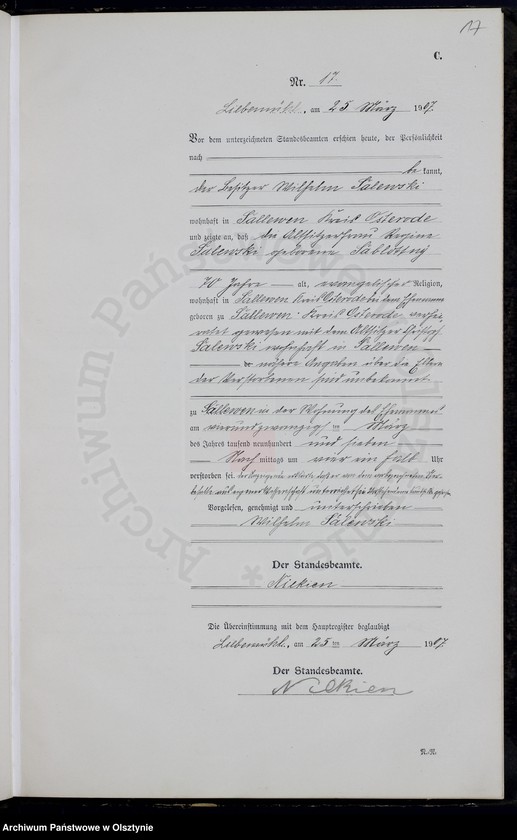 17
C.
Nr. 17.
Liebemühl, am 25 März 1907.
Vor dem unterzeichneten Standesbeamten erschien heute, der Persönlichkeit
nach
be kannt,
der Besitzer Wilhelm Salewski
wohnhaft in Sallewen Kreis Osterode
und zeigte an, daß die Altsitzerfrau Regine
Salewski geborene
70 Jahre alt, evangelischer Religion,
wohnhaft in Sallewen Kreis Osterode bei dem Ehemann
geboren zu Sallewen Kreis Osterode, verhei-
ratet gewesen mit dem Altsitzer
Salewski wohnhaft in Sallewen
nähere Angaben über die Eltern
der Verstorbenen sind unbekannt
zu Sallewen in der Wohnung des Ehemannes
am vierundzwanzigsten März
des Jahres tausend neunhundert und sieben
Nach mittags um vier ein halb Uhr
verstorben sei. der Anzeigende erklärte, daß er von dem
aus eigener Wissenschaft unterrichtet sei
Vorgelesen, genehmigt und unterschrieben
Wilhelm Salewski
Der Standesbeamte.
Nilkien
Die Übereinstimmung mit dem Hauptregister beglaubigt
Liebemühl, am 25 ten März 1907.
Der Standesbeamte.
Nilkien
Archiwum Państwowe w Olsztynie
Archiwum Państwowe w Olsztynie